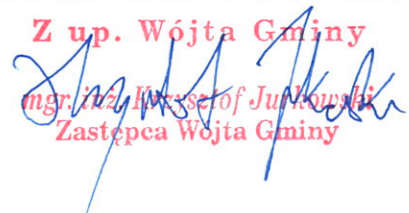 Z up. Wójta Gminy
mgr. inż. Krzysztof Jutkowski
Zastępca Wójta Gminy